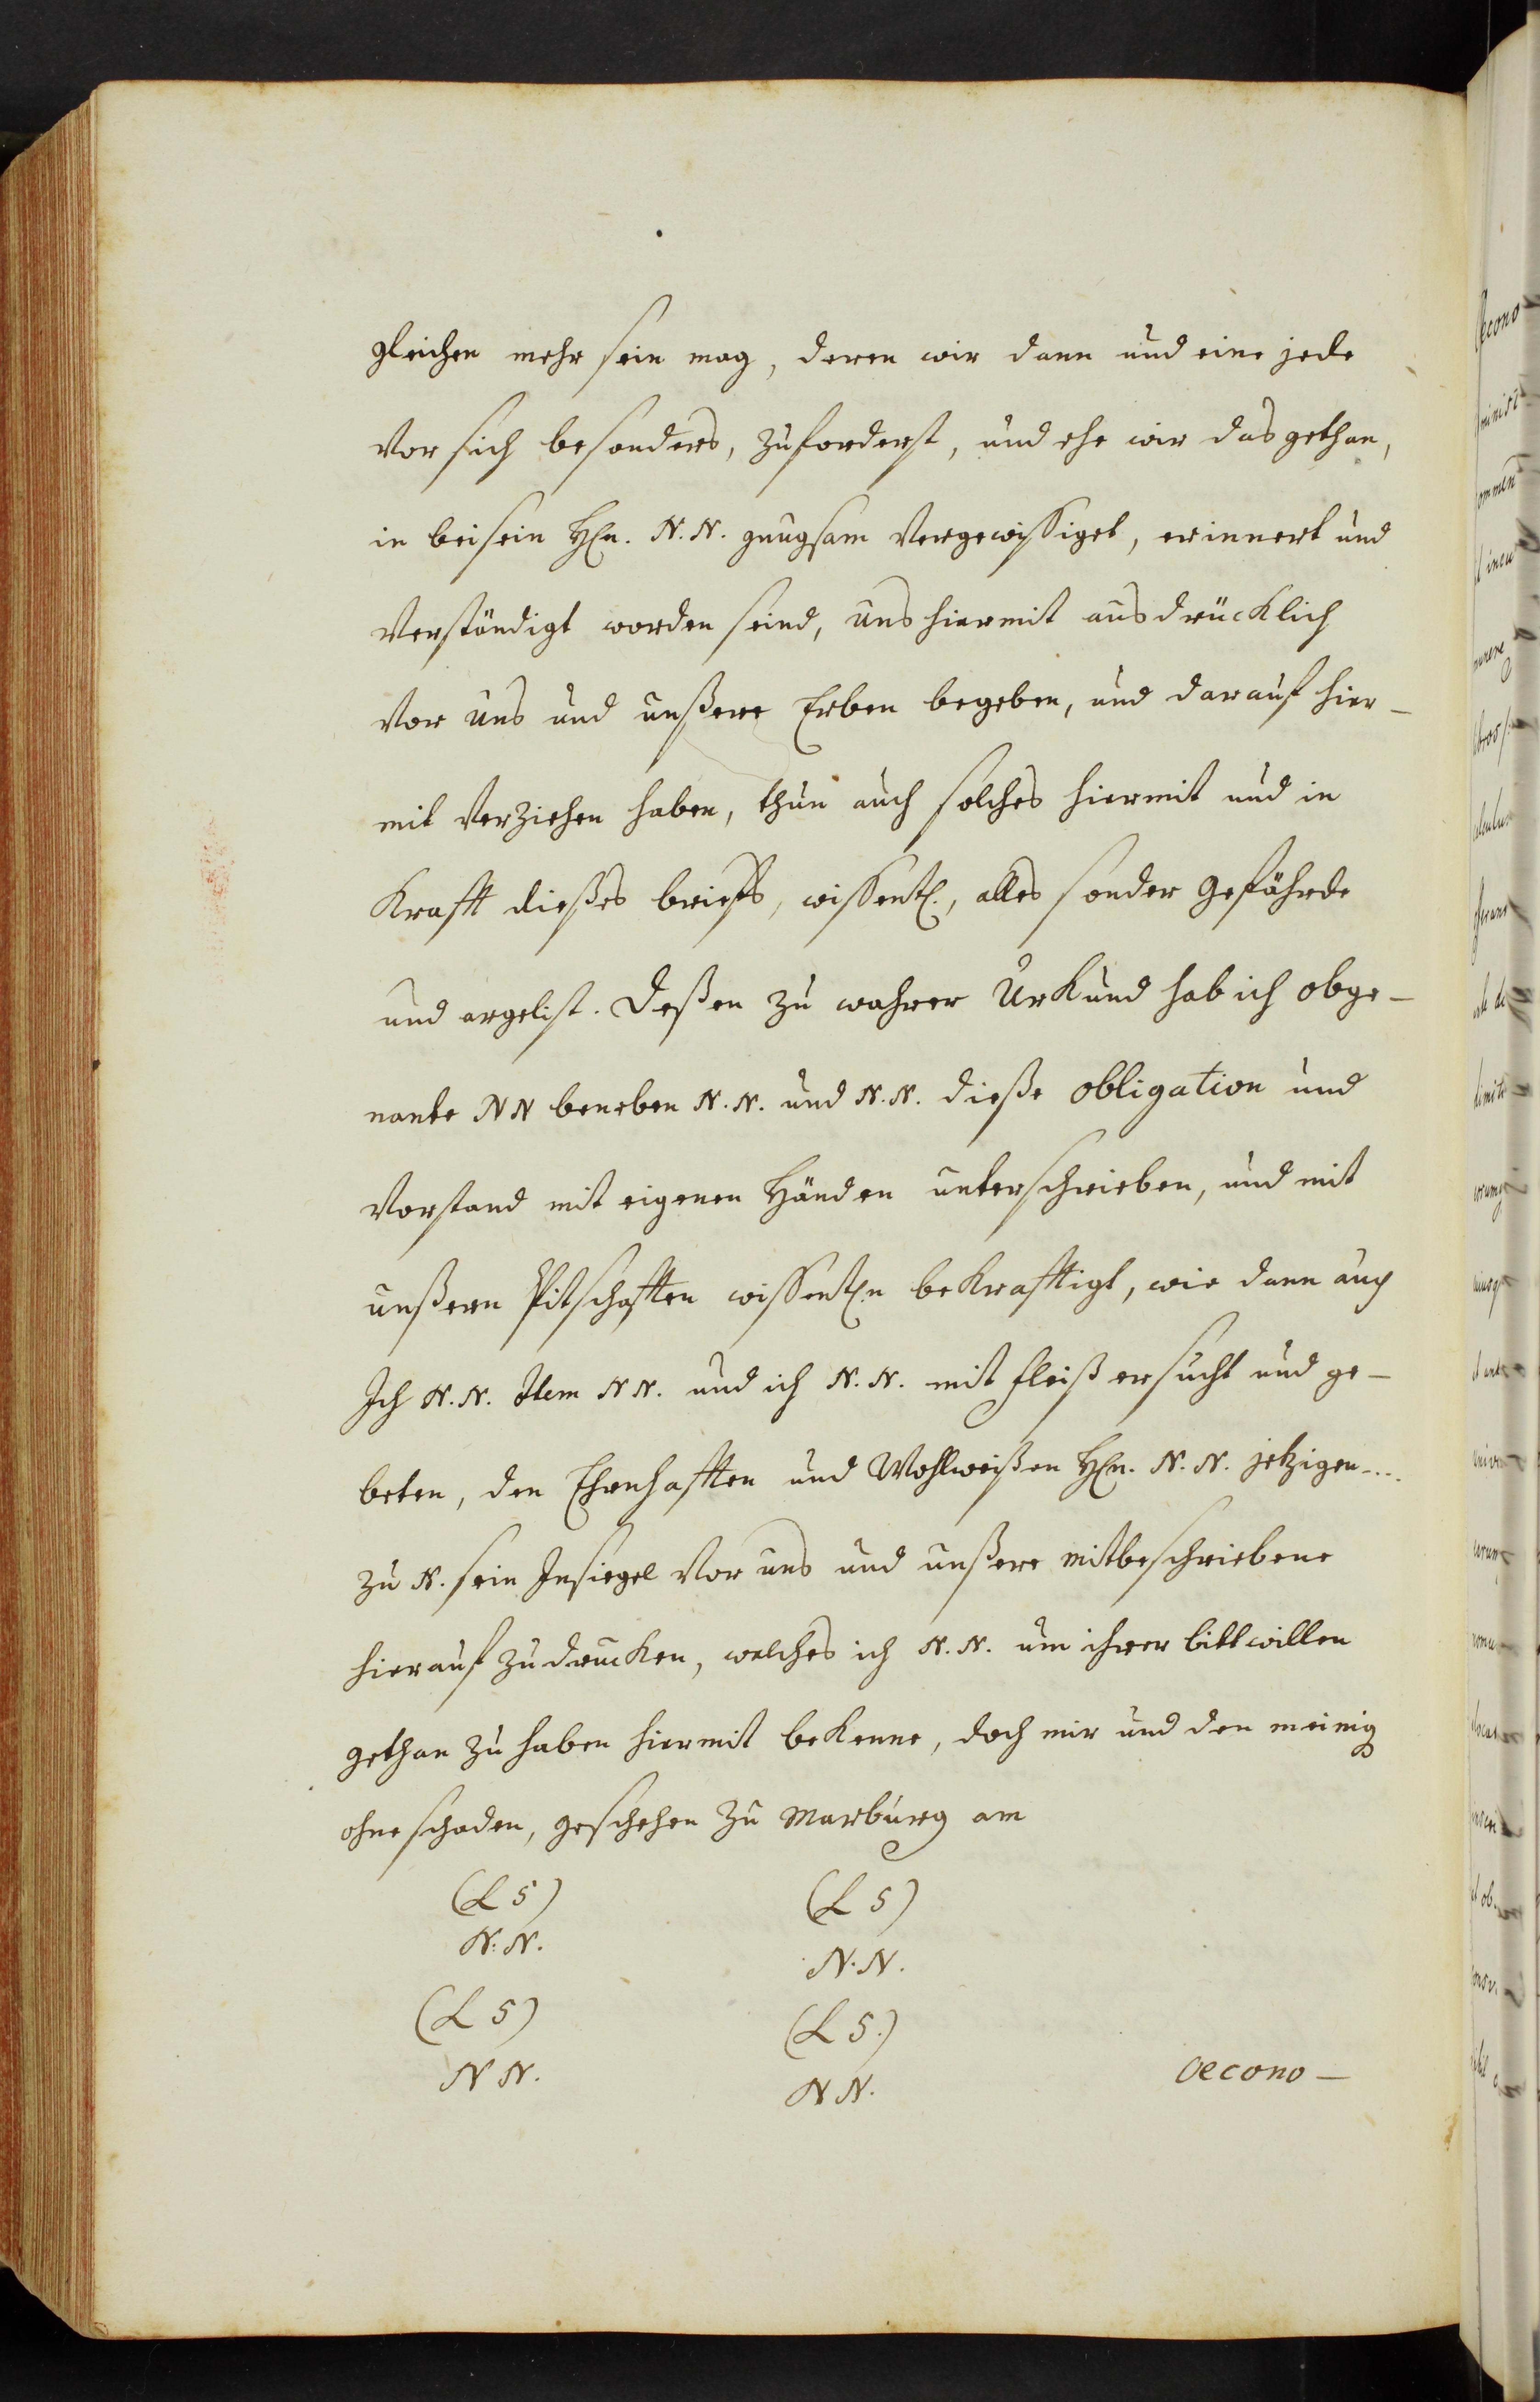 gleichen mehr sein mag, deren wir dann und eine jede
vor sich besonders, zuforderst, und ehe wir das gethan,
in beisein Hn. N. N. gnugsam vergewissiget, erinnert und
verständigt worden seind, uns hiermit ausdrücklich
vor uns und unßere Erben begeben, und darauf hier-
mit verziehen haben, thun auch solches hiermit und in
Krafft dießes brieffs, wissentl., alles sonder gefährde
und argelist. Deßen zu wahrer Urkund hab ich obge-
nante NN beneben N. N. und N. N. dieße obligation und
Vorstand mit eigenen Händen unterschrieben, und mit
unßern Pitschafften wissentln bekrafftigt, wie dann auch
Ich N. N. Item N N. und ich N. N. mit fleiß ersucht und ge-
beten, den Ehrnhafften und Wohlweißen Hn. N. N. jetzigen ....
zu N. sein Insiegel vor uns und unßere mitbeschriebene
hierauf zu drucken, welches ich N. N. um ihrer bitt willen
gethan zu haben hiermit bekenne, doch mir und den meinig
ohne schaden, geschehen zu Marburg am
(L S) (L S)
N. N. N. N.
(L S) (L S.)
N N. N N.
oecono-